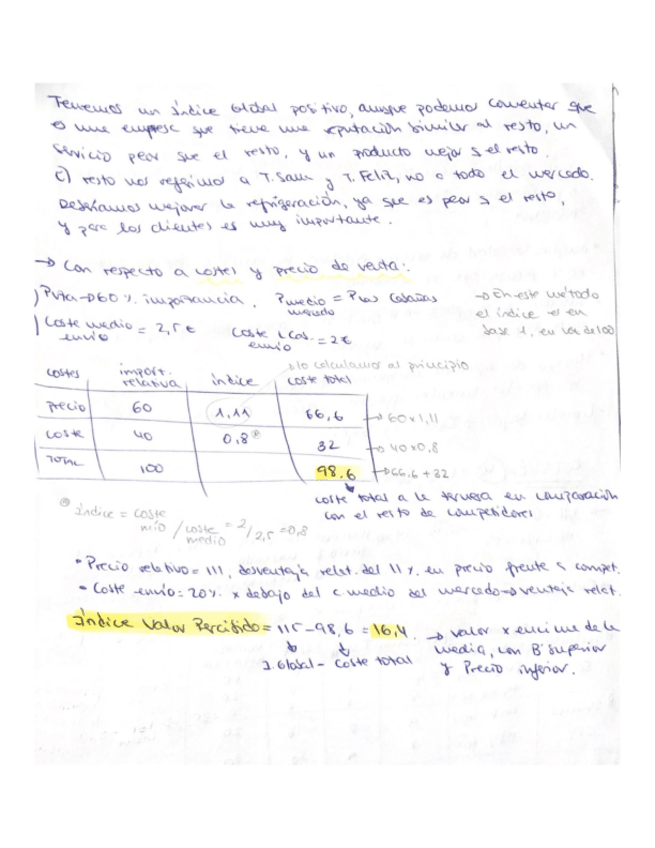 Tenemos un índice Global positivo, aunque podemos comentar que
es una empresa que tiene una reputación similar al resto, un
servicio peor que el resto, y un producto mejor q el resto.
C) resto nos referimos a T. Sam y T. Feliz, no a todo el mercado.
Deberíamos mejorar la refrigeración, ya que es peor q el resto,
y para los clientes es muy importante.
→ Con respecto a costes y precio de venta:
) Pvta → 60 %. importancia. Pmedio mercado = Las Cabañas
→ En este método
el índice es en
base 1, en vez de 100
) Coste medio envío = 2,5 € Coste L Cas. envío = 2€
→ lo calculamos al principio
costes import. relativa índice coste total
precio 60 1,11 66,6 → 60x1,11
coste 40 0,8 32 → 40x0,8
TOTAL 100 98.6 → 66,6 + 32
coste total a la tervesa en comparación
con el resto de competidores
índice = coste mío / coste medio = 2/2,5 = 0,8
• Precio relativo = 111, desventaja relat. del 11 %. en precio frente a compet.
• Coste envío = 20%. x debajo del c medio del mercado → ventaja relat.
Índice Valor Percibido = 115 - 98,6 = 16,4. → valor x encima de la
media, con Bº superior
y Precio inferior.
I. Global - Coste total